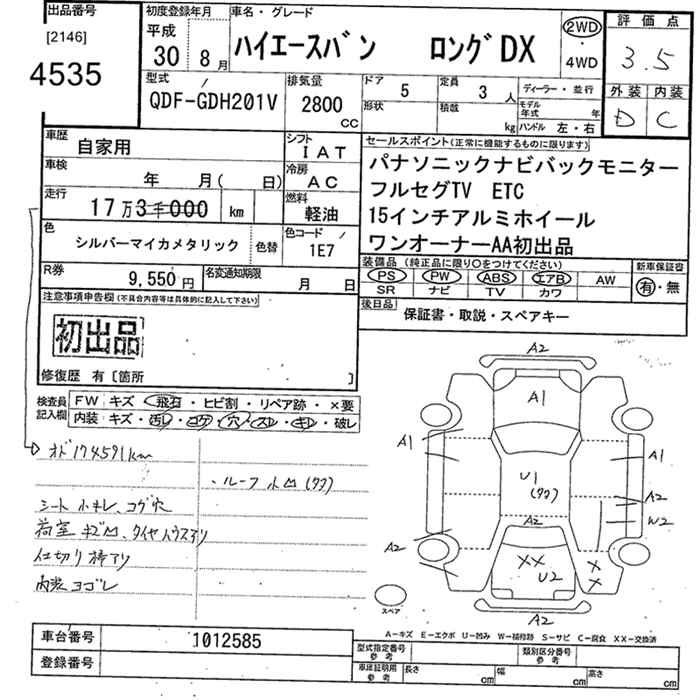 出品番号
[2146]
4535
初度登録年月
平成
30 8月
車名・グレード
ハイエースバン ロングDX
2WD
・
4WD
評価点
3.5
外装 内装
D C
型式
QDF-GDH201V
排気量
2800
cc
ドア
5
定員
3人
形状
積載
kg
ディーラー・並行
モデル年式 年
ハンドル 左・右
車歴
自家用
シフト
IAT
車検
年 月( 日)
冷房
AC
走行
17万3千000 km
燃料
軽油
色
シルバーマイカメタリック
色替
色コード
1E7
R券
9,550円
名変通知期限
月 日
セールスポイント(正常に機能するものに限ります)
パナソニックナビバックモニター
フルセグTV ETC
15インチアルミホイール
ワンオーナーAA初出品
装備品(純正品に限り○をつけてください)
PS PW ABS エアB AW
SR ナビ TV カワ
新車保証書
有・無
後日品
保証書・取説・スペアキー
注意事項申告欄(不具合内容等は具体的に記入して下さい)
初出品
修復歴 有[箇所 ]
検査員
記入欄
FW キズ・飛石・ヒビ割・リペア跡・×要
内装:キズ・汚レ・コゲ・穴・スレ・キレ・破レ
オド174591km
・ルーフ小凹(ワワ)
シート小キレ、コゲ穴
荷室キズ凹、タイヤハウスアリ
仕切り棒アリ
内装ヨゴレ
A2
A1
A1
A1
U1
(ワワ)
A2
W2
A2
A2
XX
U2
X
X
スペア
A2
A-キズ E-エクボ U-凹み W-補修跡 S-サビ C-腐食 XX-交換済
車台番号
1012585
登録番号
型式指定番号
参考
類別区分番号
参考
車庫証明用
参考
長さ cm 幅 cm 高さ cm